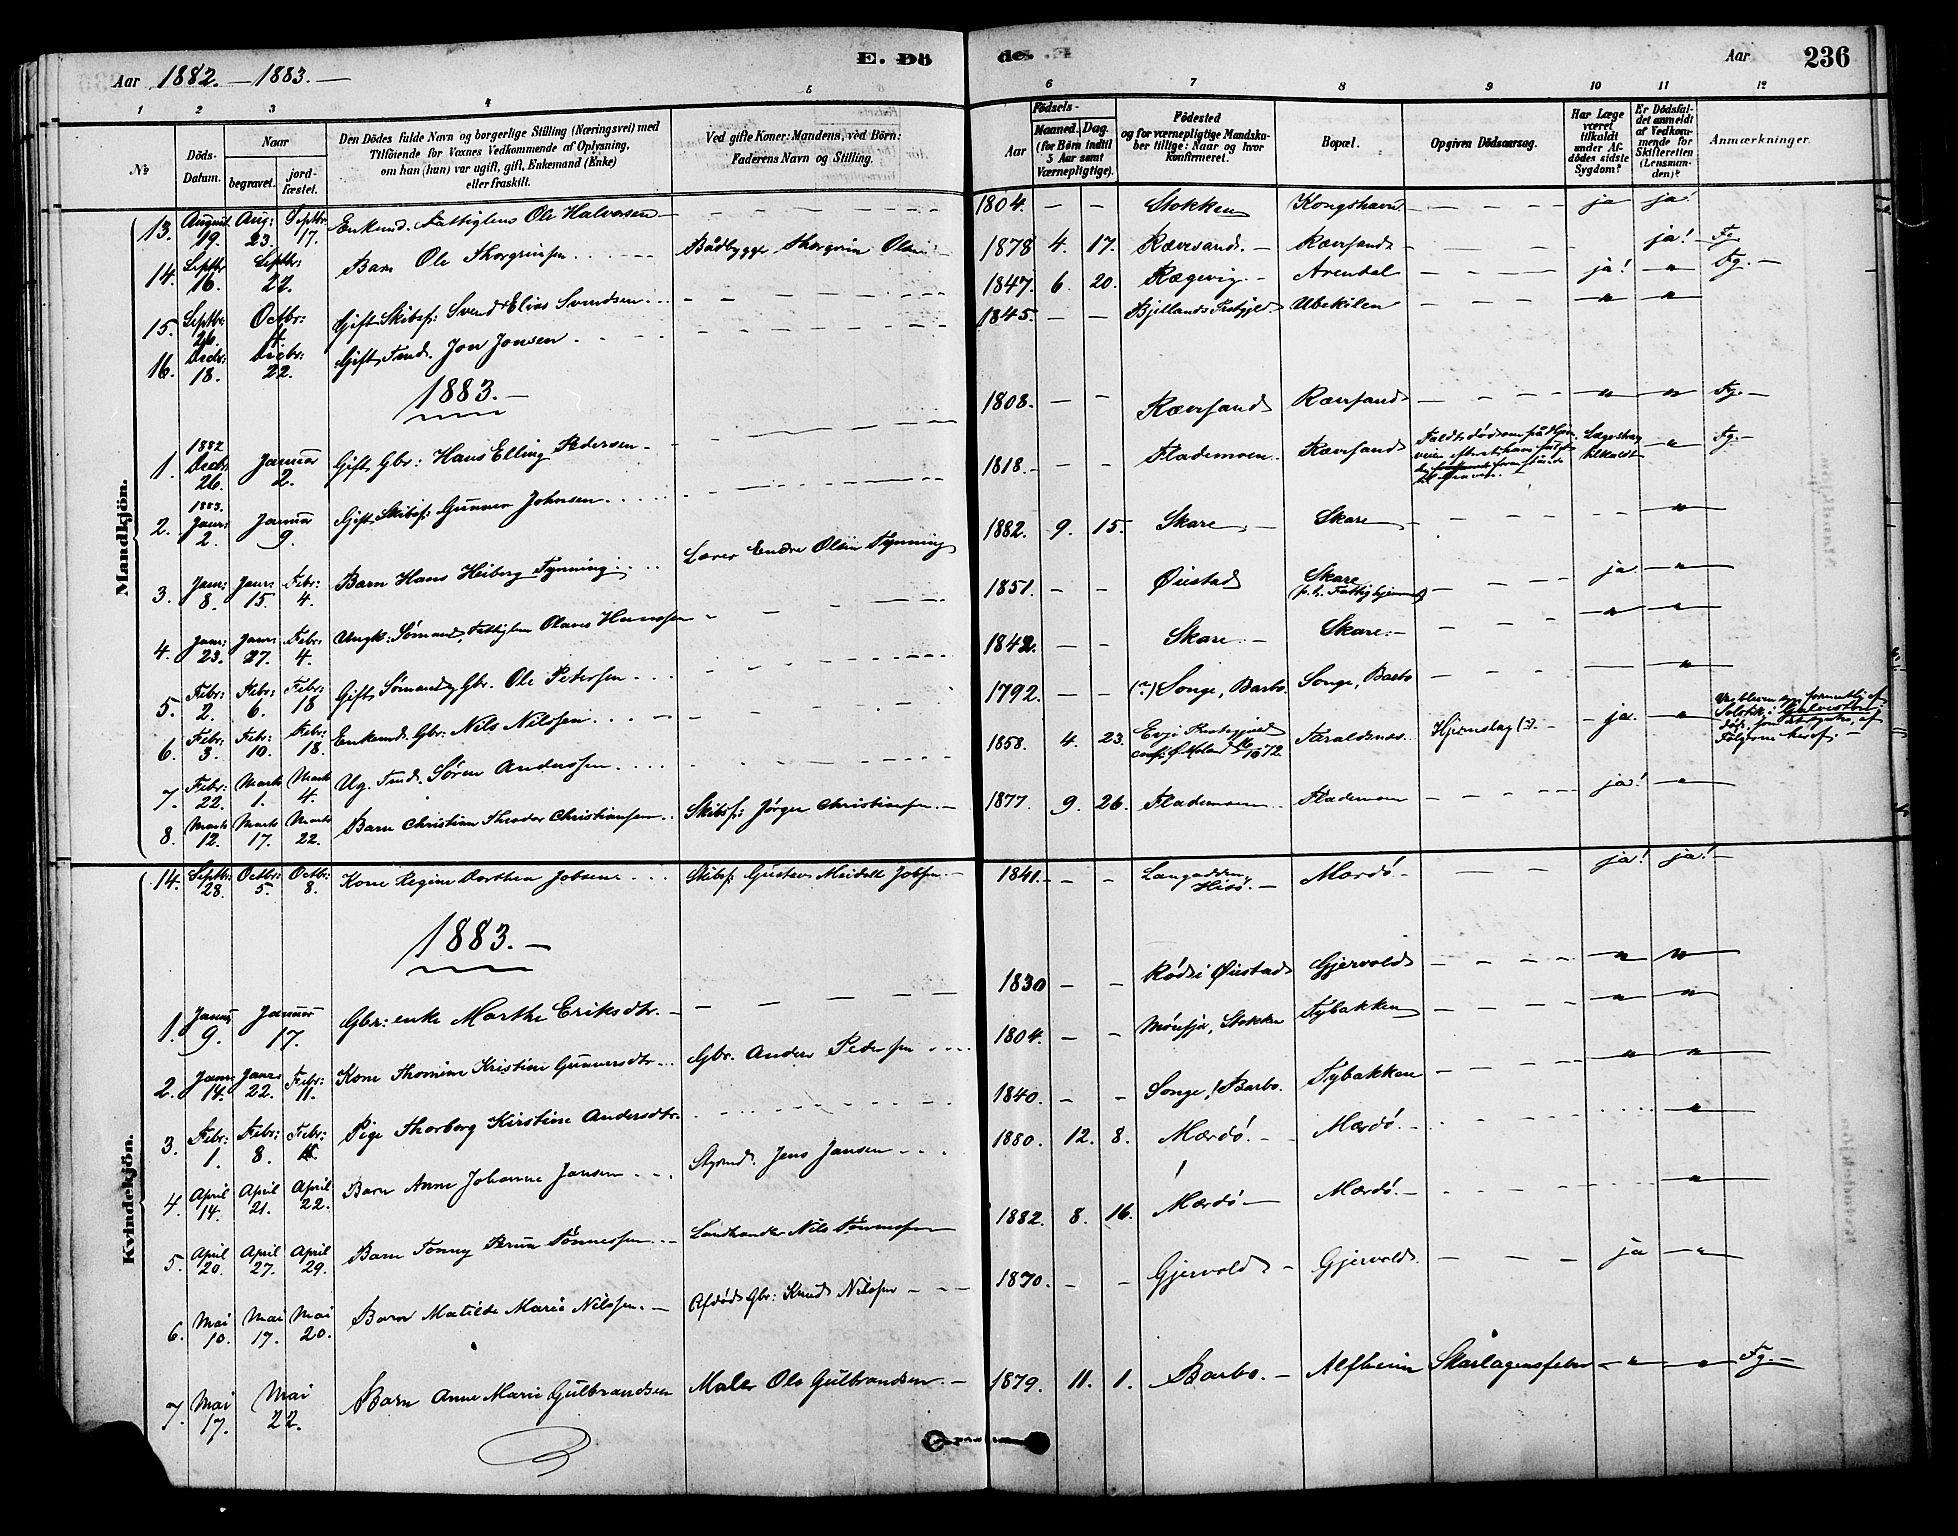 Aar 1882. — 1883. —
E. Dö
de.
Aar
236
1 2 3 4 5 6 7 8 9 10 11 12
№
Döds-Datum.
Naar
begravet.
jord-fæstet.
Den Dödes fulde Navn og borgerlige Stilling (Næringsvei) med
Tilföiende for Voxnes Vedkommende af Oplysning,
om han (hun) var ugift, gift, Enkemand (Enke)
eller fraskilt.
Ved gifte Koner: Mandens, ved Börn:
Faderens Navn og Stilling.
Födsels-
Aar
Maaned. Dag.
(for Börn indtil
5 Aar samt
Værnepligtige).
Födested
og for værnepligtige Mandska-
ber tillige: Naar og hvor
konfirmeret.
Bopæl.
Opgiven Dödsaarsag.
Har Læge
været
tilkaldt
under Af-
dödes sidste
Sygdom?
Er Dödsfal-
det anmeldt
af Vedkom-
mende for
Skifteretten
(Lensman-
den)?
Anmærkninger.
Mandkjön.
13. August 19. Aug: 23. Septbr 17. Enkemd. Fattiglem Ole Halvorsen — 1804. — — Stokken Kongshavn ja ja!
14. Septbr 16. Septbr: 22. Barn Ole Thorgrimsen Bådbygger Thorgrim Olsen 1878 4. 17. Rævesand. — Rævesand ja! Fg.
15. Septbr: 26. Octbr: Gift Skibsf: Svend Elias Svendsen 1847. 6. 20. Rægevig. — Arendal ja! " Fg. —
16. Decbr: 18. Decbr: 22. Gift Tmd. Jon Jonsen. 1845. — — Bjellands Prstgjeld Ubekilen " "
1883. —
1. 1882 Decbr 26. Januar 2. Gift Gbr: Hans Elling Pedersen — 1808. — — Rævesand Rævesand " " Fg. —
2. 1883. Janr: 2. Januar 9. Gift Skibsf: Gunner Johnsen 1818. — — Flademoen. Rævesand Faldt død om på Hjem- Læge strax tilkaldt " Fg. —
3. Janr: 8. Janr: 15. Febr: 4. Barn Hans Heiberg Tynning Lærer Endre Olsen Tynning 1882. 9. 15. Skare — Skare "
4. Janr: 23. Janr: 27. Febr: 4. Ungk: Sømand, Fattiglem Olaves Hanssen 1851. — — Øiestad Skare ja "
5. Febr: 2. Febr: 6. Febr: 18 Gift Sømand, Gbr. Ole Petersen 1842. — — Skare. — Skare. — " "
6. Febr: 3. Febr: 10. Febr: 18 Enkemd. Gbr: Nils Nilssen 1792. — — (?) Songe, Barbo Songe, Barbo "
7. Febr: 22. Marts 1. Marts 4. Ug. Tmd. Søren Anderssen 1858. 4. 23. Evje Prestegjeld 1872. Taraldsnes Hjerneslag (?). ja "
8. Marts 12. Marts 17. Marts 22. Barn Christian Theodor Christiansen Skibsf: Jørgen Christiansen 1877. 9. 26. Flademoen Flademoen ja! "
Kvindekjön.
14. Septbr: 28. Octbr: 5. Octbr: 8. Kone Regine Dorthea Jobsen Skibsf: Gustav Meidell Jobsen 1841. — — Langødden, Hisø. — Mærdø ja! ja!
1883. —
1. Januar 9. Januar 17. Gbr: enke Marthe Eriksdtr. — 1830 — — Rød i Øiestad Gjervold " "
2. Janr: 14. Janr: 22. Febr: 11. Kone Thomine Kristine Gunnersdtr Gbr. Anders Pedersen 1804. — — Stokken Tybakken " "
3. Febr: 1. Febr: 8. Febr: Pige Thorborg Kirstine Andersdtr. 1840. — — Songe, Barbo. Tybakken " "
4. April 14. April 21. April 22. Barn Anne Johanne Jansen Styrmd. Jens Jansen 1880. 12. 8. Mærdø. — Mærdø. — "
5. April 20. April 27. April 29. Barn Tonny Tønnessen Landhandler Nils Tønnessen 1882. 8. 16. Mærdø — Mærdø. — "
6. Mai 10. Mai 17. Mai 20. Barn Matilde Marie Nilssen. — Afdød Gbr: Knud Nilssen 1870. — — Gjervold Gjervold. ja "
7. Mai 17. Mai 22. Barn Anne Marie Gulbrandsen Maler Ole Gulbrandsen. — 1879. 11. 1. Barbo. — Alfheim Skarlagensfeber " " Fg. —